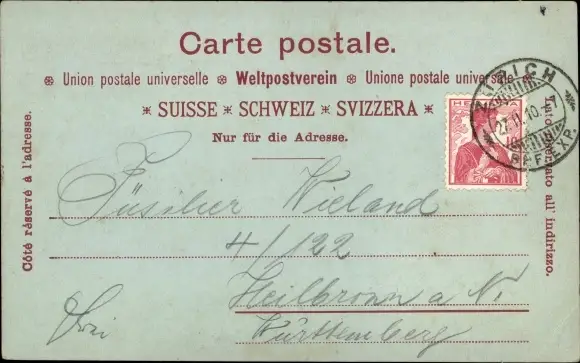 Carte postale.
※ Union postale universelle ※ Weltpostverein ※ Unione postale universale ※
※ SUISSE ※ SCHWEIZ ※ SVIZZERA ※
Nur für die Adresse.
Côté réservé à l'adresse.
Lato riservato all' indirizzo.
HELVETIA
ZÜRICH
27.II.10.
BRF. EXP.
Füsilier Wieland
4/122
Heilbronn a N.
Württemberg